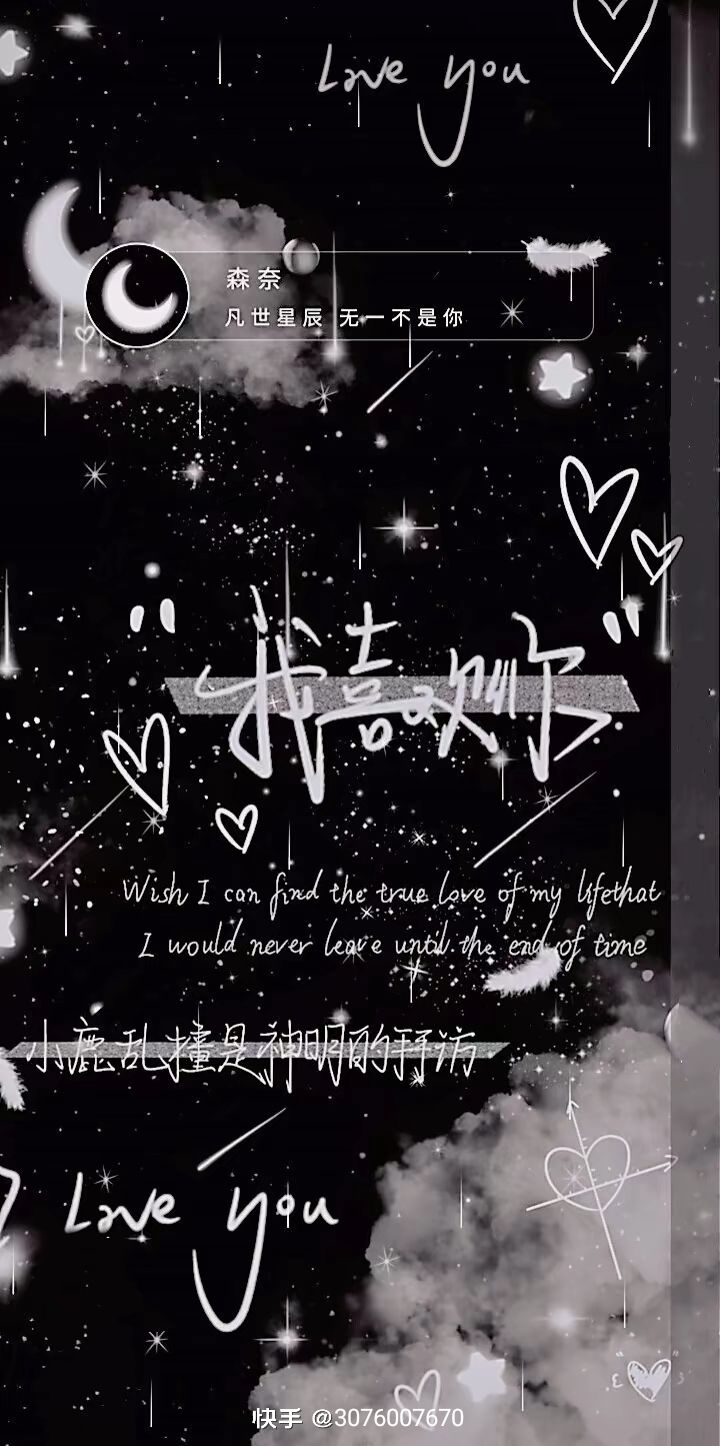 Love you
森奈
凡世星辰 无一不是你
"我喜欢你"
Wish I can find the true love of my lifethat
I would never leave until the end of time
小鹿乱撞是神明的拜访
Love you
快手 @3076007670